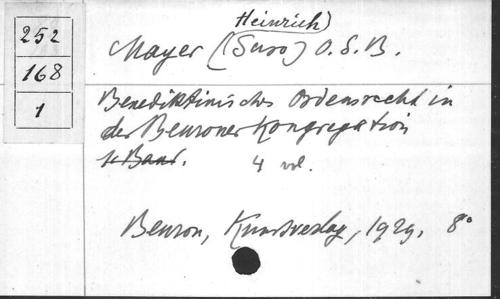 252
168
1
Heinrich)
Mayer (Suso) O.S.B.
Benediktinisches Ordensrecht in
der Beuroner Kongregation
1. Band. 4 vol.
Beuron, Kunstverlag, 1929. 8°